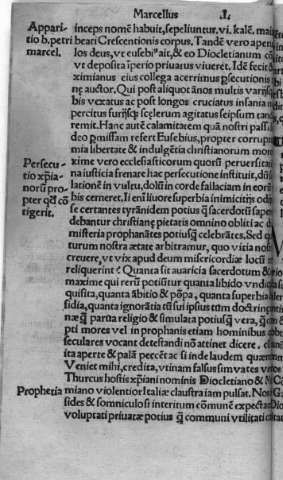 Marcellus
Appari
tio b. petri
marcel.
inceps nomē habuit, sepeliuntur. vi. kalē. mai
beati Crescentionis corpus. Tandē vero apen
los deus, vt eusebiꝰ ait, & eo Diocletianum cō
vt deposita īperio priuatus viueret. Idē fecit &
ximianus eius collega acerrimus ꝑsecutionis
nę auctor. Qui post aliquot ānos multis varijsq̄
bis vexatus ac post longos cruciatus insania
percitus surijsq̄ scelerum agitatus seipsum tan
remit. Hanc autē calamitatem quā nostri passi
deo ꝑmissam refert Eusebius, propter corrup
mia libertate & indulgētia christianorum mor
Persecu-
tio xp̄ia-
norū pro
pter qd̄ cō
tigerit.
xime vero ecclesiasticorum quorū peruersita
na iusticia frenare hac persecutione instituit, dū
lationē in vultu, dolū in corde fallaciam in eor
bis cerneret. Ii enī liuore superbia inimicitijs
se certantes tyrānidem potius q̄ sacerdotū sape
debantur christianę pietatis omnino obliti ac d
misteria prophanātes potius q̄ celebrātes. Sed q
turum nostra ętate arbitramur, quo vitia nostr
creuere, vt vix apud deum misericordiae locū
reliquerint? Quanta sit auaricia sacerdotum &
maxime qui rerū potiūtur quanta libido vndi
quisita, quanta ābitio & pōpa, quanta superbia
sidia, quanta ignorātia tū sui ipsius tūm doctrin
naeq̄ parua religio & simulata potiusq̄ vera, q̄
pti mores vel in prophanis etiam hominibus
seculares vocant detestandi nō attinet dicere,
ita aperte & palā peccēt ac si inde laudem quae
Veniet mihi, credite, vtinam falsus sim vates
Thurcus hostis xp̄iani nominis Diocletiano &
Prophetia
miano violentior Italiae claustra iam pulsat. Nos
sides & somniculosi interitum cōmunē expecta
voluptati priuatae potius q̄ communi vtilitati